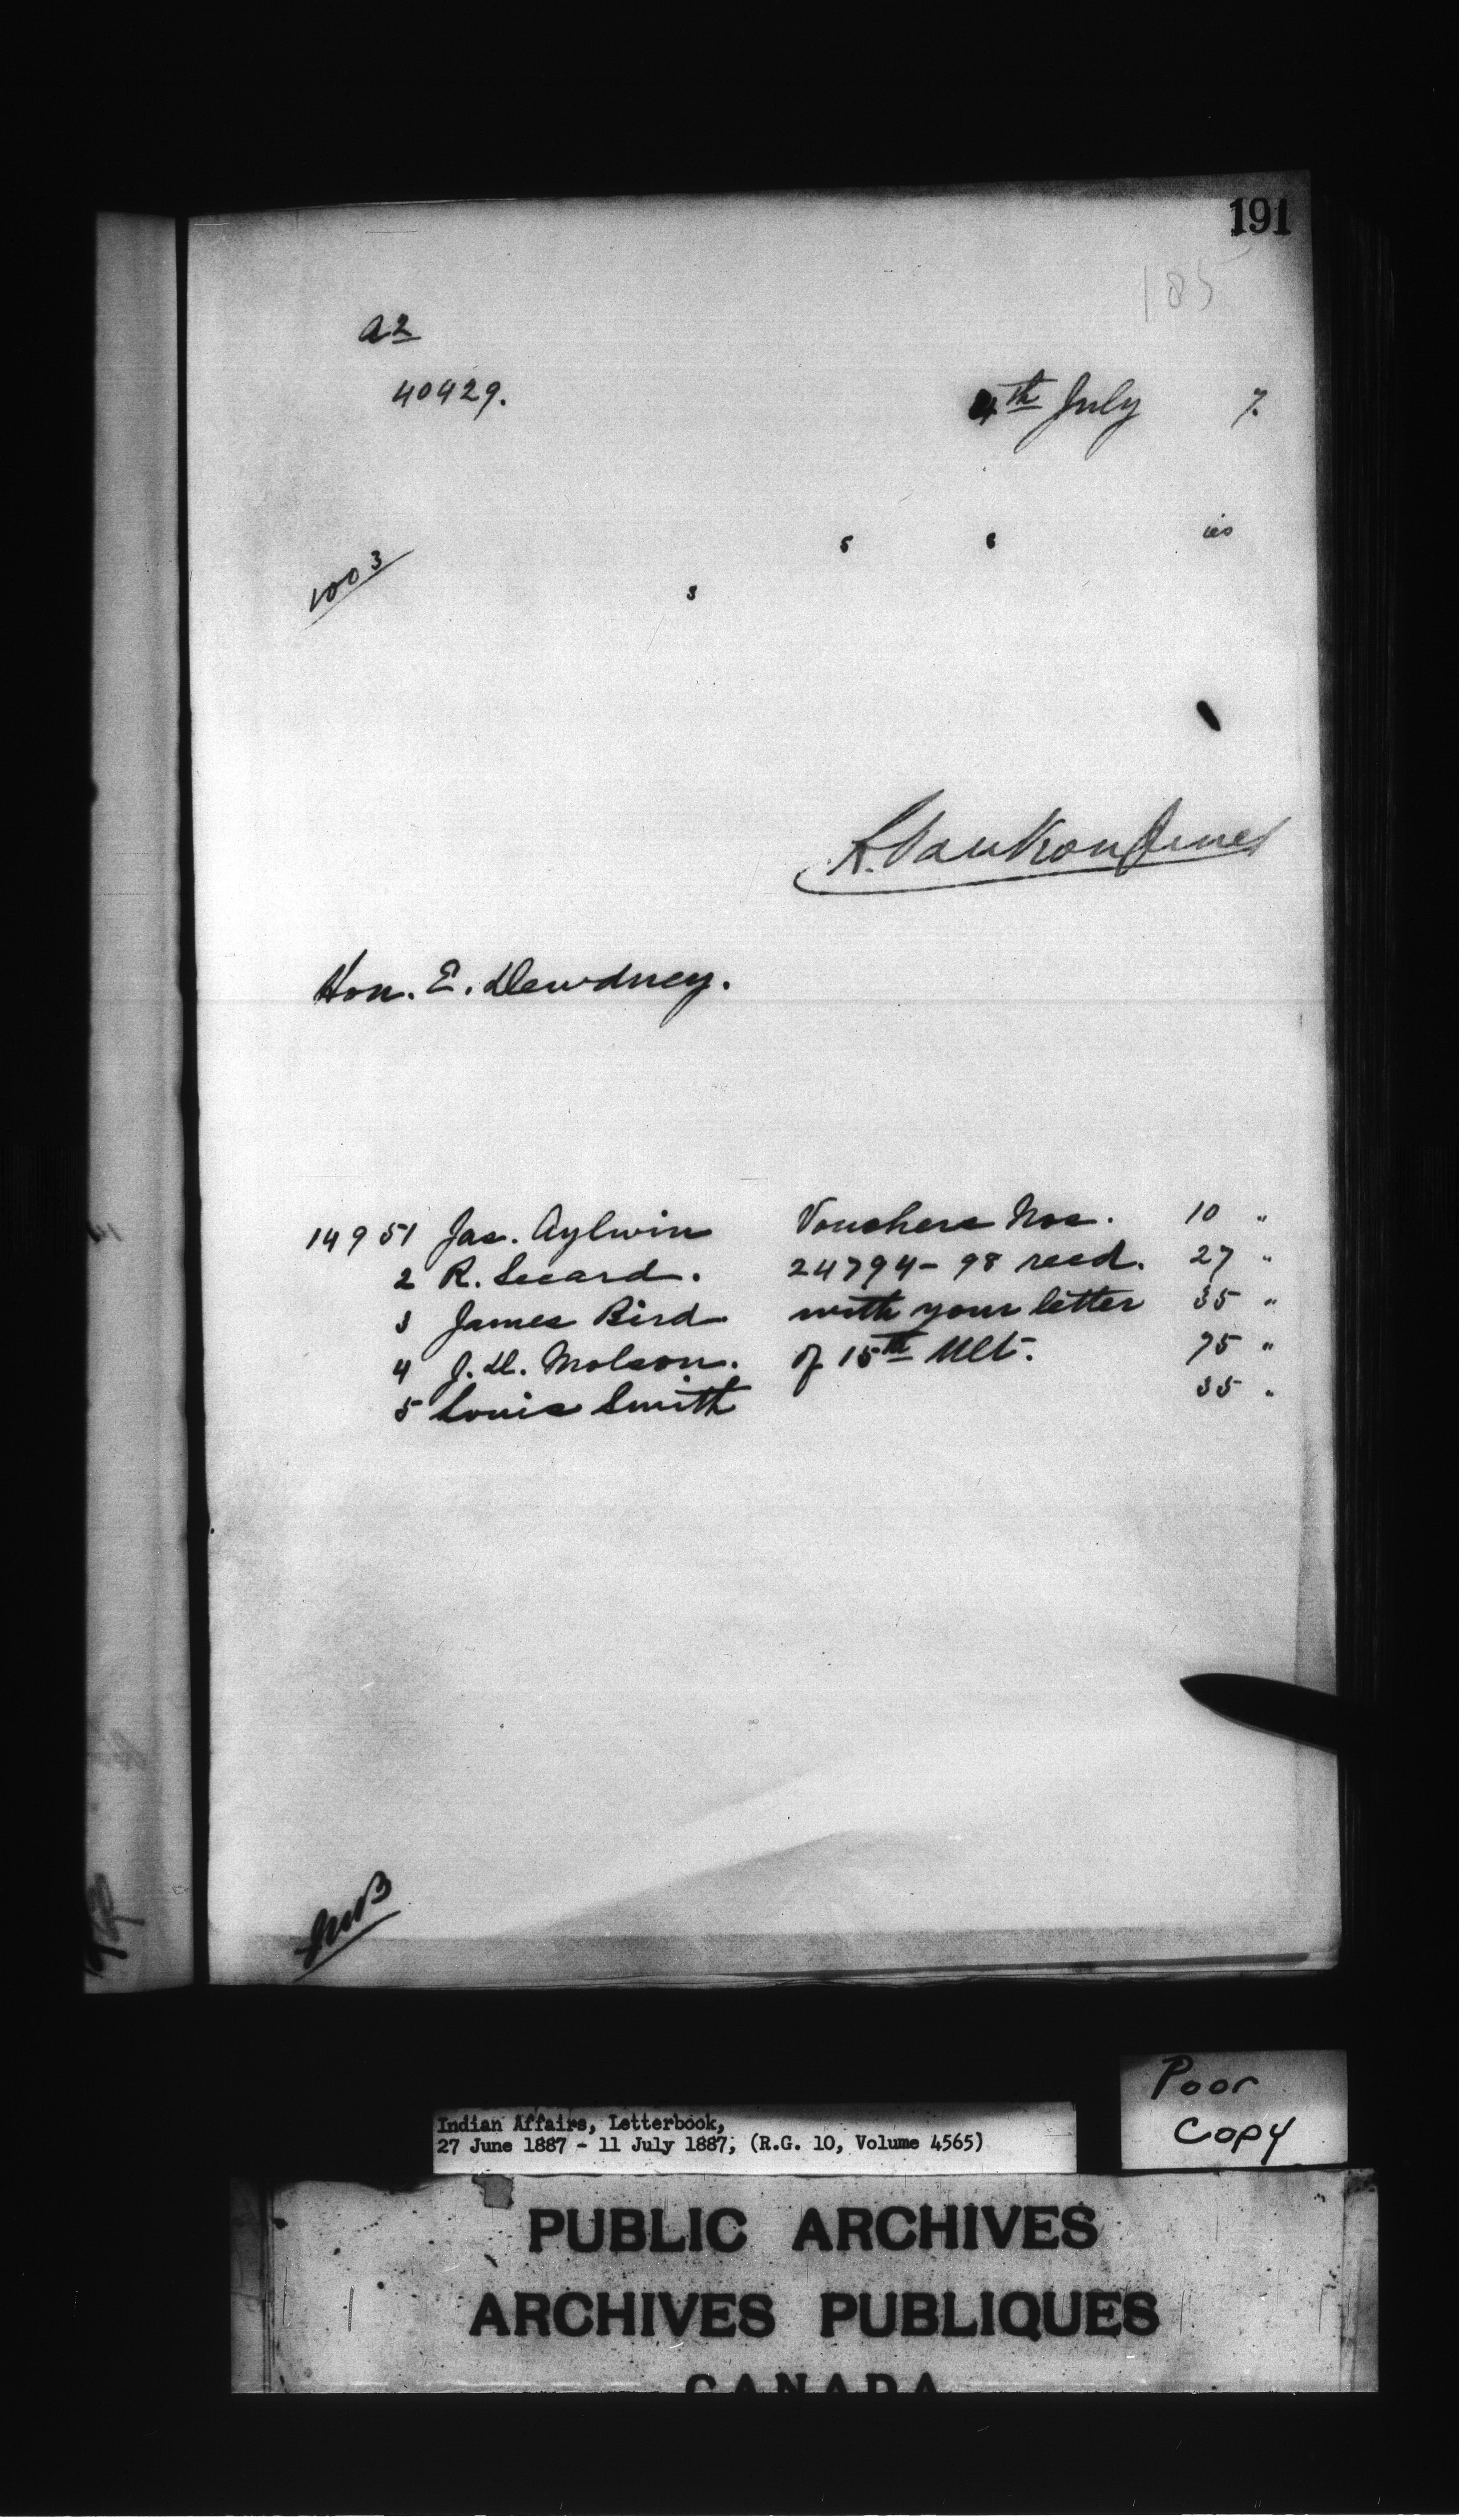 191
185
a2
40429.
4th July 7.
s s ies
1003
s
L. Vankoughnet
Hon. E. Dewdney.
14951 Jas. Aylwin Vouchers Nos. 10 "
2 R. Secard. 24794-98 recd. 27 "
3 James Bird with your letter 35 "
4 J. D. Molson. of 15th Ult. 75 "
5 Louis Smith 35 "
Poor
Copy
Indian Affairs, Letterbook,
27 June 1887 - 11 July 1887, (R.G. 10, Volume 4565)
PUBLIC ARCHIVES
ARCHIVES PUBLIQUES
CANADA